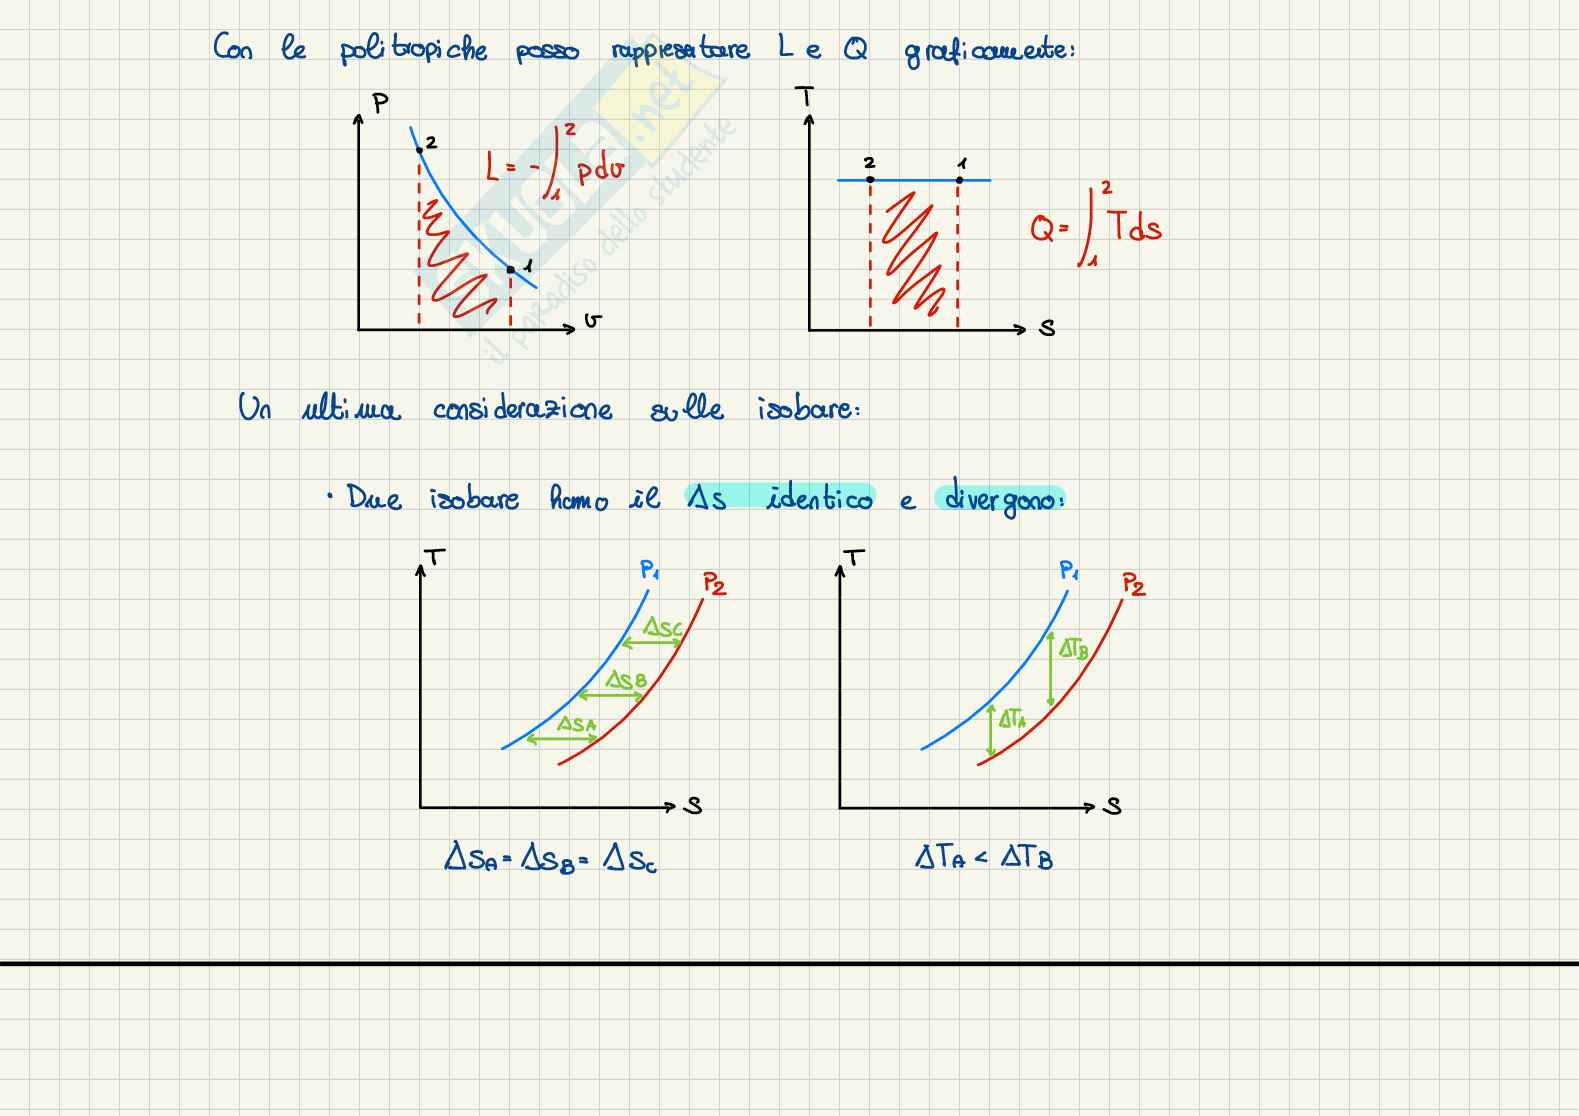 Con le politropiche posso rappresentare L e Q graficamente:
P
2
L = - ∫₁² pdv
1
v
T
2 1
Q = ∫₁² Tds
s
Un ultima considerazione sulle isobare:
· Due isobare hanno il Δs identico e divergono:
T
P₁
P₂
ΔSc
ΔSB
ΔSA
S
T
P₁
P₂
ΔTB
ΔTA
S
ΔSA = ΔSB = ΔSc
ΔTA < ΔTB
.net
il paradiso dello studente